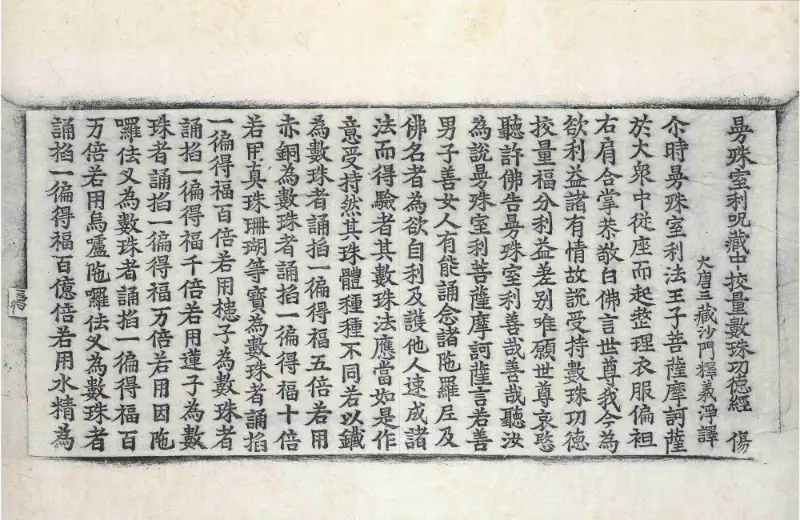 曼殊室利呪藏中挍量數珠功德經 傷
大唐三藏沙門釋義淨譯
尒時曼殊室利法王子菩薩摩訶薩
於大衆中從座而起整理衣服偏袒
右肩合掌恭敬白佛言世尊我今為
欲利益諸有情故說受持數珠功德
挍量福分利益差別唯願世尊哀愍
聽許佛告曼殊室利善哉善哉聽汝
為說曼殊室利菩薩摩訶薩言若善
男子善女人有能誦念諸陁羅尼及
佛名者為欲自利及護他人速成諸
法而得驗者其數珠法應當如是作
意受持然其珠體種種不同若以鐵
為數珠者誦掐一徧得福五倍若用
赤銅為數珠者誦掐一徧得福十倍
若用真珠珊瑚等寶為數珠者誦掐
一徧得福百倍若用槵子為數珠者
誦掐一徧得福千倍若用蓮子為數
珠者誦掐一徧得福万倍若用因陁
囉佉叉為數珠者誦掐一徧得福百
万倍若用烏嚧陁囉佉叉為數珠者
誦掐一徧得福百億倍若用水精為